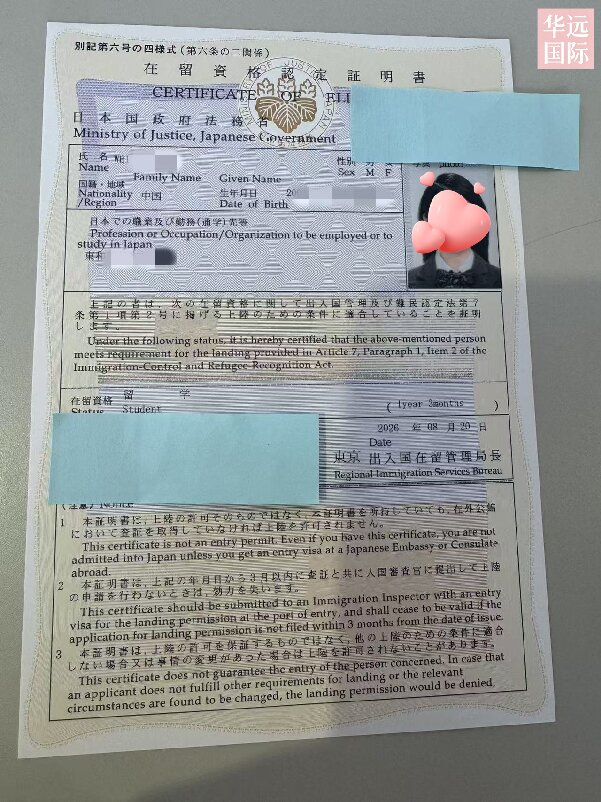 华远
国际
別記第六号の四様式(第六条の二関係)
在留資格認定証明書
CERTIFICATE OF ELI
日本国政府法務省
Ministry of Justice, Japanese Government
氏名 WEI
Name
Family Name Given Name
性別 男 女
Sex M F
写真 photo
国籍・地域
Nationality 中国
/Region
生年月日 20
Date of Birth
日本での職業及び勤務(通学)先等
Profession or Occupation/Organization to be employed or to
study in Japan
東和
上記の者は、次の在留資格に関して出入国管理及び難民認定法第7
条第1項第2号に掲げる上陸のための条件に適合していることを証明
します。
Under the following status, it is hereby certified that the above-mentioned person
meets requirement for the landing provided in Article 7, Paragraph 1, Item 2 of the
Immigration-Control and Refugee-Recognition Act.
在留資格 留学
Status Student
( 1year 3months )
2026 年 08 月 20 日
Date
東京 出入国在留管理局長
Regional Immigration Services Bureau
(注意) Notice
1 本証明書は、上陸の許可そのものではなく、本証明書を所持していても、在外公館
において査証を取得していなければ上陸を許可されません。
This certificate is not an entry permit. Even if you have this certificate, you are not
admitted into Japan unless you get an entry visa at a Japanese Embassy or Consulate
abroad.
2 本証明書は、上記の年月日から3月以内に査証と共に入国審査官に提出して上陸
の申請を行わないときは、効力を失います。
This certificate should be submitted to an Immigration Inspector with an entry
visa for the landing permission at the port of entry, and shall cease to be valid if the
application for landing permission is not filed within 3 months from the date of issue.
3 本証明書は、上陸の許可を保証するものではなく、他の上陸のための条件に適合
しない場合又は事情の変更があった場合は上陸を許可されないことがあります。
This certificate does not guarantee the entry of the person concerned. In case that
an applicant does not fulfill other requirements for landing or the relevant
circumstances are found to be changed, the landing permission would be denied.